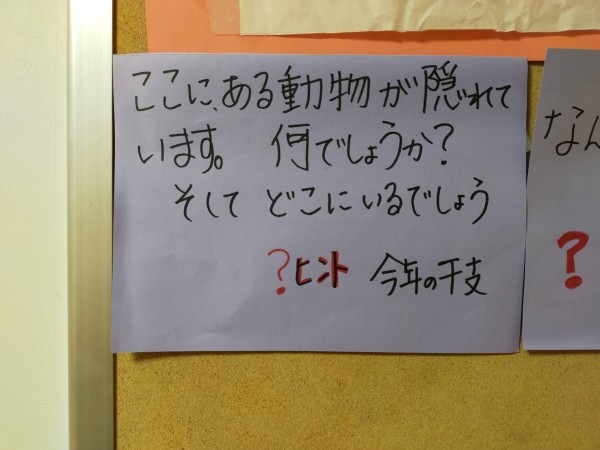 ここに、ある動物が隠れて
います。 何でしょうか?
そして どこにいるでしょう
?ヒント 今年の干支
なん
?